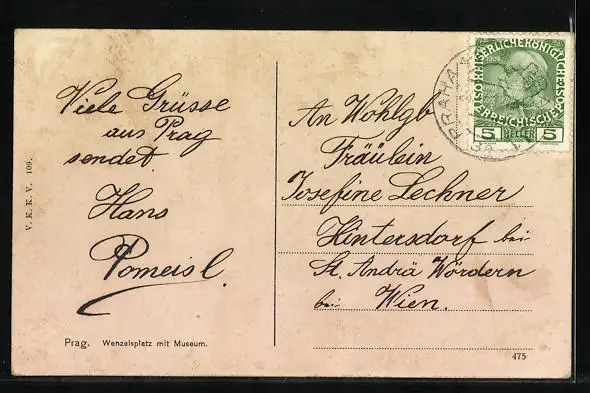 Viele Grüsse
aus Prag
sendet
Hans
Pomeisl.
V. K. K. V. 100.
Prag. Wenzelsplatz mit Museum.
An Wohlgb
Fräulein
Josefine Lechner
Hintersdorf bei
St. Andrä Wördern
bei Wien.
475
KAISERLICHEKÖNIGLICHE
ÖSTERREICHISCHE
1908
5 HELLER 5
PRAHA